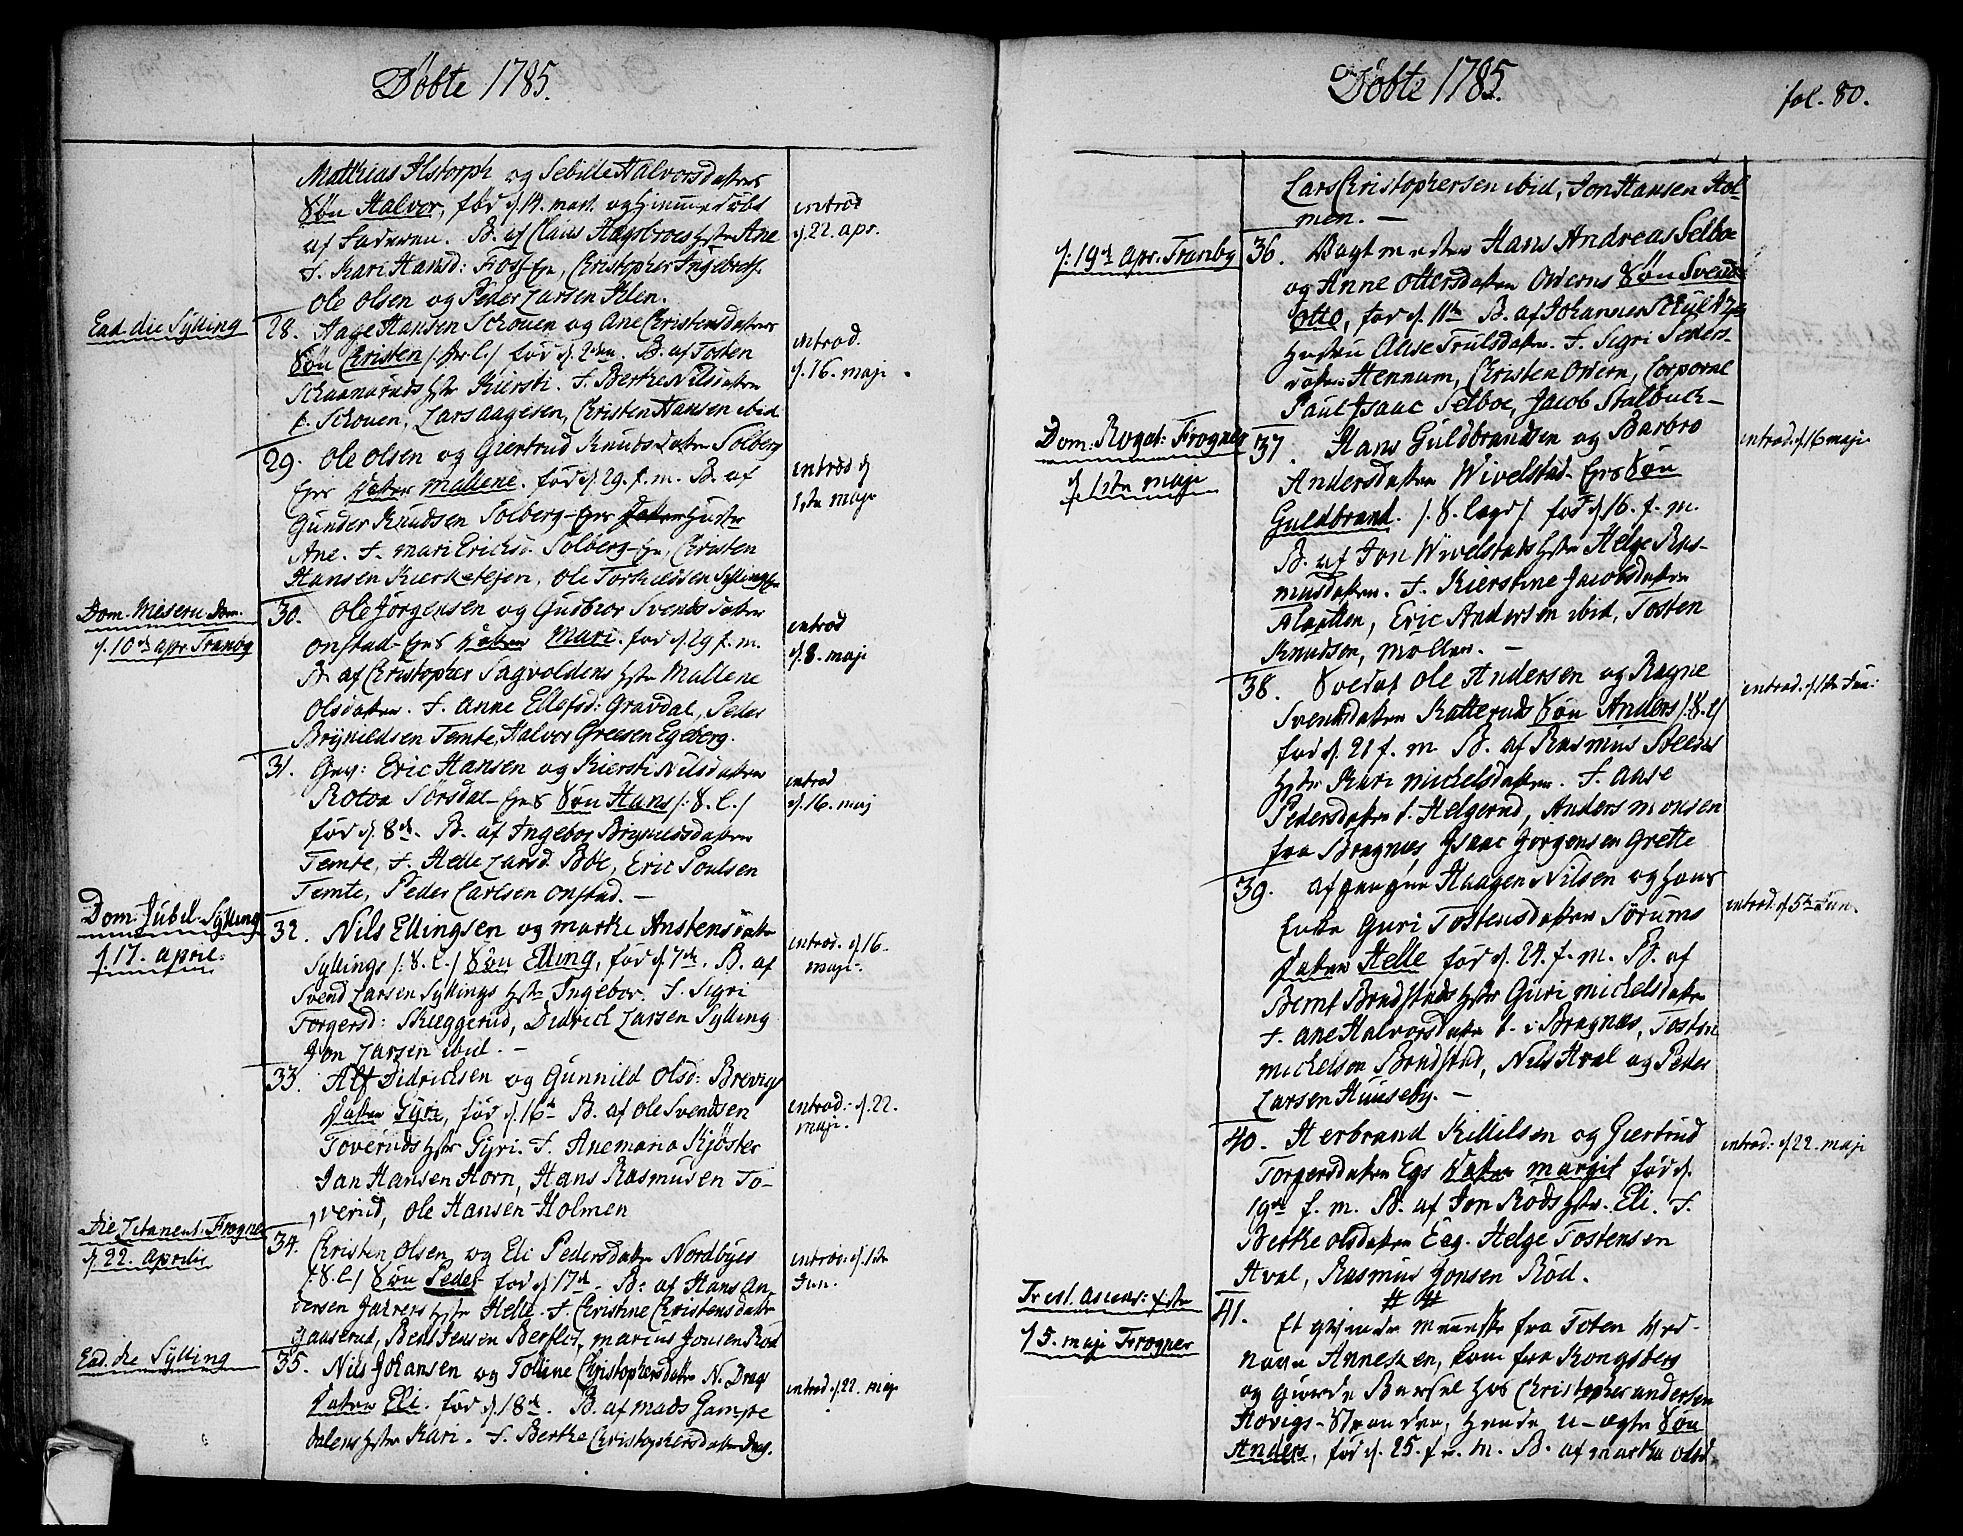 Døbte 1785.
Mathias Ilstorph og Sebille Halvorsdatters
Søn Halvor, fød d. 14. mart. og hiemmedøbt
af Faderen. B. af Claus Hagsbroes hstr Ane
F. Kari Hansd: Christopher Ingebretss.
Ole Olsen og Peder Larsen Klen.
introd
d. 22. apr.
Ead. die Sylling
28. Aage Hansen Schouen og Ane Christensdatters
Søn Christen fød d. 2den. B. af Tosten
hstr Kiersti. F. Berthe Nilsdatter
Schouen, Lars Aagesen, Christen Hansen ibid
introd.
d. 16. maji.
29. Ole Olsen og Giertrud Knudsdatter Solberg
Eyes Datter Mallene. fød d. 29. f. m. B. af
Gunder Knudsen Solberg-Eyes Datter Hustr
Ane. F. Mari Ericksd. Solberg-Eye, Christen
Hansen Kierketejen, Ole Torkieldsen Sylling
introd d
1ste maji
Dom. Misericordi. Dom.
d. 10de apr. Tranby
30. Ole Jörgensen og Gudbror Svendsdatter
Onstad-Eyes Datter Mari. fød d. 29 f. m.
B. af Christopher Sagvoldens hstr Mallene
Olsdatter. F. Anne Ellefsd: Gravdal, Peder
Brynildsen Temte, Halvor Greesen Egeberg.
introd
d. 8. maji
31. Gev: Eric Hansen og Kiersti Nilsdatter
Rotva Sörsdal-Eyes Søn Hans /:8. l./
fød d. 8de. B. af Ingebor Brynildsdatter
Temte, F. Helle Larsd Böe, Eric Poulsen
Temte, Peder Carlsen Onstad. —
introd
d. 16. maj
Dom. Jubil. Sylling
d. 17. april.
32. Nils Ellingsen og Marthe Anstensdatter
Syllings /:8. l./ Søn Elling, fød d. 7de. B. af
Svend Larsen Syllings hstr Ingebor. F. Sigri
Torgersd: Skeggerud, Didrich Larsen Sylling
Jon Larsen ibid. —
introd. d. 16
maji.
33. Alf Didrichsen og Gunnild Olsd: Brevigs
Datter Gyri, fød d. 16de B. af Ole Svendsen
Toveruds hstr Gyri. F. Anemaria Kjöster
Jan Hansen Horn, Hans Rasmusen To-
verud, Ole Hansen Holmen
introd: d. 22.
maji.
Die Litaneut: Frogner
d. 22. Aprilis
34. Christen Olsen og Eli Pedersdatter Nordbyes
/:8. l/ Søn Peder fød d. 17de B: af Hans An
dersen Jahrers hstr Helle. F. Christine Christensdatter
Gauserud, Bent Jensen Berflot, Marius Jonsen Röd
introd: d. 1ste
Jun.
Ead. die Sylling
35. Nils Johansen og Tolline Christophersdatter N. Drags
Datter Eli. fød d. 18de. B. af Mads Gampe
dalens hstr Kari. F. Berthe Christophersdatter Drag.
introd. d. 22. maji
Døbte 1785.
fol. 80.
Lars Christophersen ibid, Jon Hansen Hol-
men. —
d: 19de Apr. Tranby
36. Vagtmester Hans Andreas Selboe
og Anne Ottersdatter Overns Søn Svend
Otto, fød d. 11te B. af Johannes
hustru Aase Trulsdatter. F. Sigri Peders-
datter Hennum, Christen Overn, Corporal
Paul Isaac Selboe, Jacob Stalbuck—
Dom. Rogat: Frogner
d. 1ste maji
37. Hans Guldbrandsen og Barbro
Andersdatter Wivelstad-Eyes Søn
Guldbrand. /:8. dage/ fød d. 16. f. m.
B. af Jon Wivelstads hstr Helge Ras-
musdatter. F. Kierstine Jacobsdatter
Eric Andersen ibid, Tosten
Knudsen, Möllen. —
introd. d. 16 maji
38. Ole Andersen og Ragne
Svendsdatter Katteruds Søn Anders /:8. l/
fød d. 21 f. m. B. af Rasmus Steens
hstr Kari Michelsdatter. F. Aase
Pedersdatter t. Helgerud, Anders Monsen
fra Bragnæs, Isaac Jorgensen Grette
introd. d. 1ste Jun:
39. afgangne Haagen Nilsen og hans
Enke Guri Tostensdatter Sörums
Datter Helle fød d. 24. f. m. B. af
Bernt Brastads hstr Guri Michelsdatter
F. Ane Halvorsdatter t. i Bragnæs, Tosten
Michelsen Brastad, Nils Hval og Peder
Larsen Huuseby. —
introd. d. 5te Jun.
40. Herbrand Killilsen og Giertrud
Torgersdatter Egs Datter Margit fød d.
19de f. m. B. af Jon Röds hstr. Eli. F.
Berthe Olsdatter Eeg. Helge Tostensen
Hval, Rasmus Jonsen Röd.
introd: d. 22. maji
Fest. Ascens: Xste
d. 5. maji Frogner
41. # #
Et qvinde Menneske fra Toten ved
navn Annesken, som fra Kongsberg
og giorde Barsel hos Christopher Andersen
Hovigs-Stranden, hendes u-ægte Søn
Anders, fød d. 25. f. m. B. af Martha Olsd